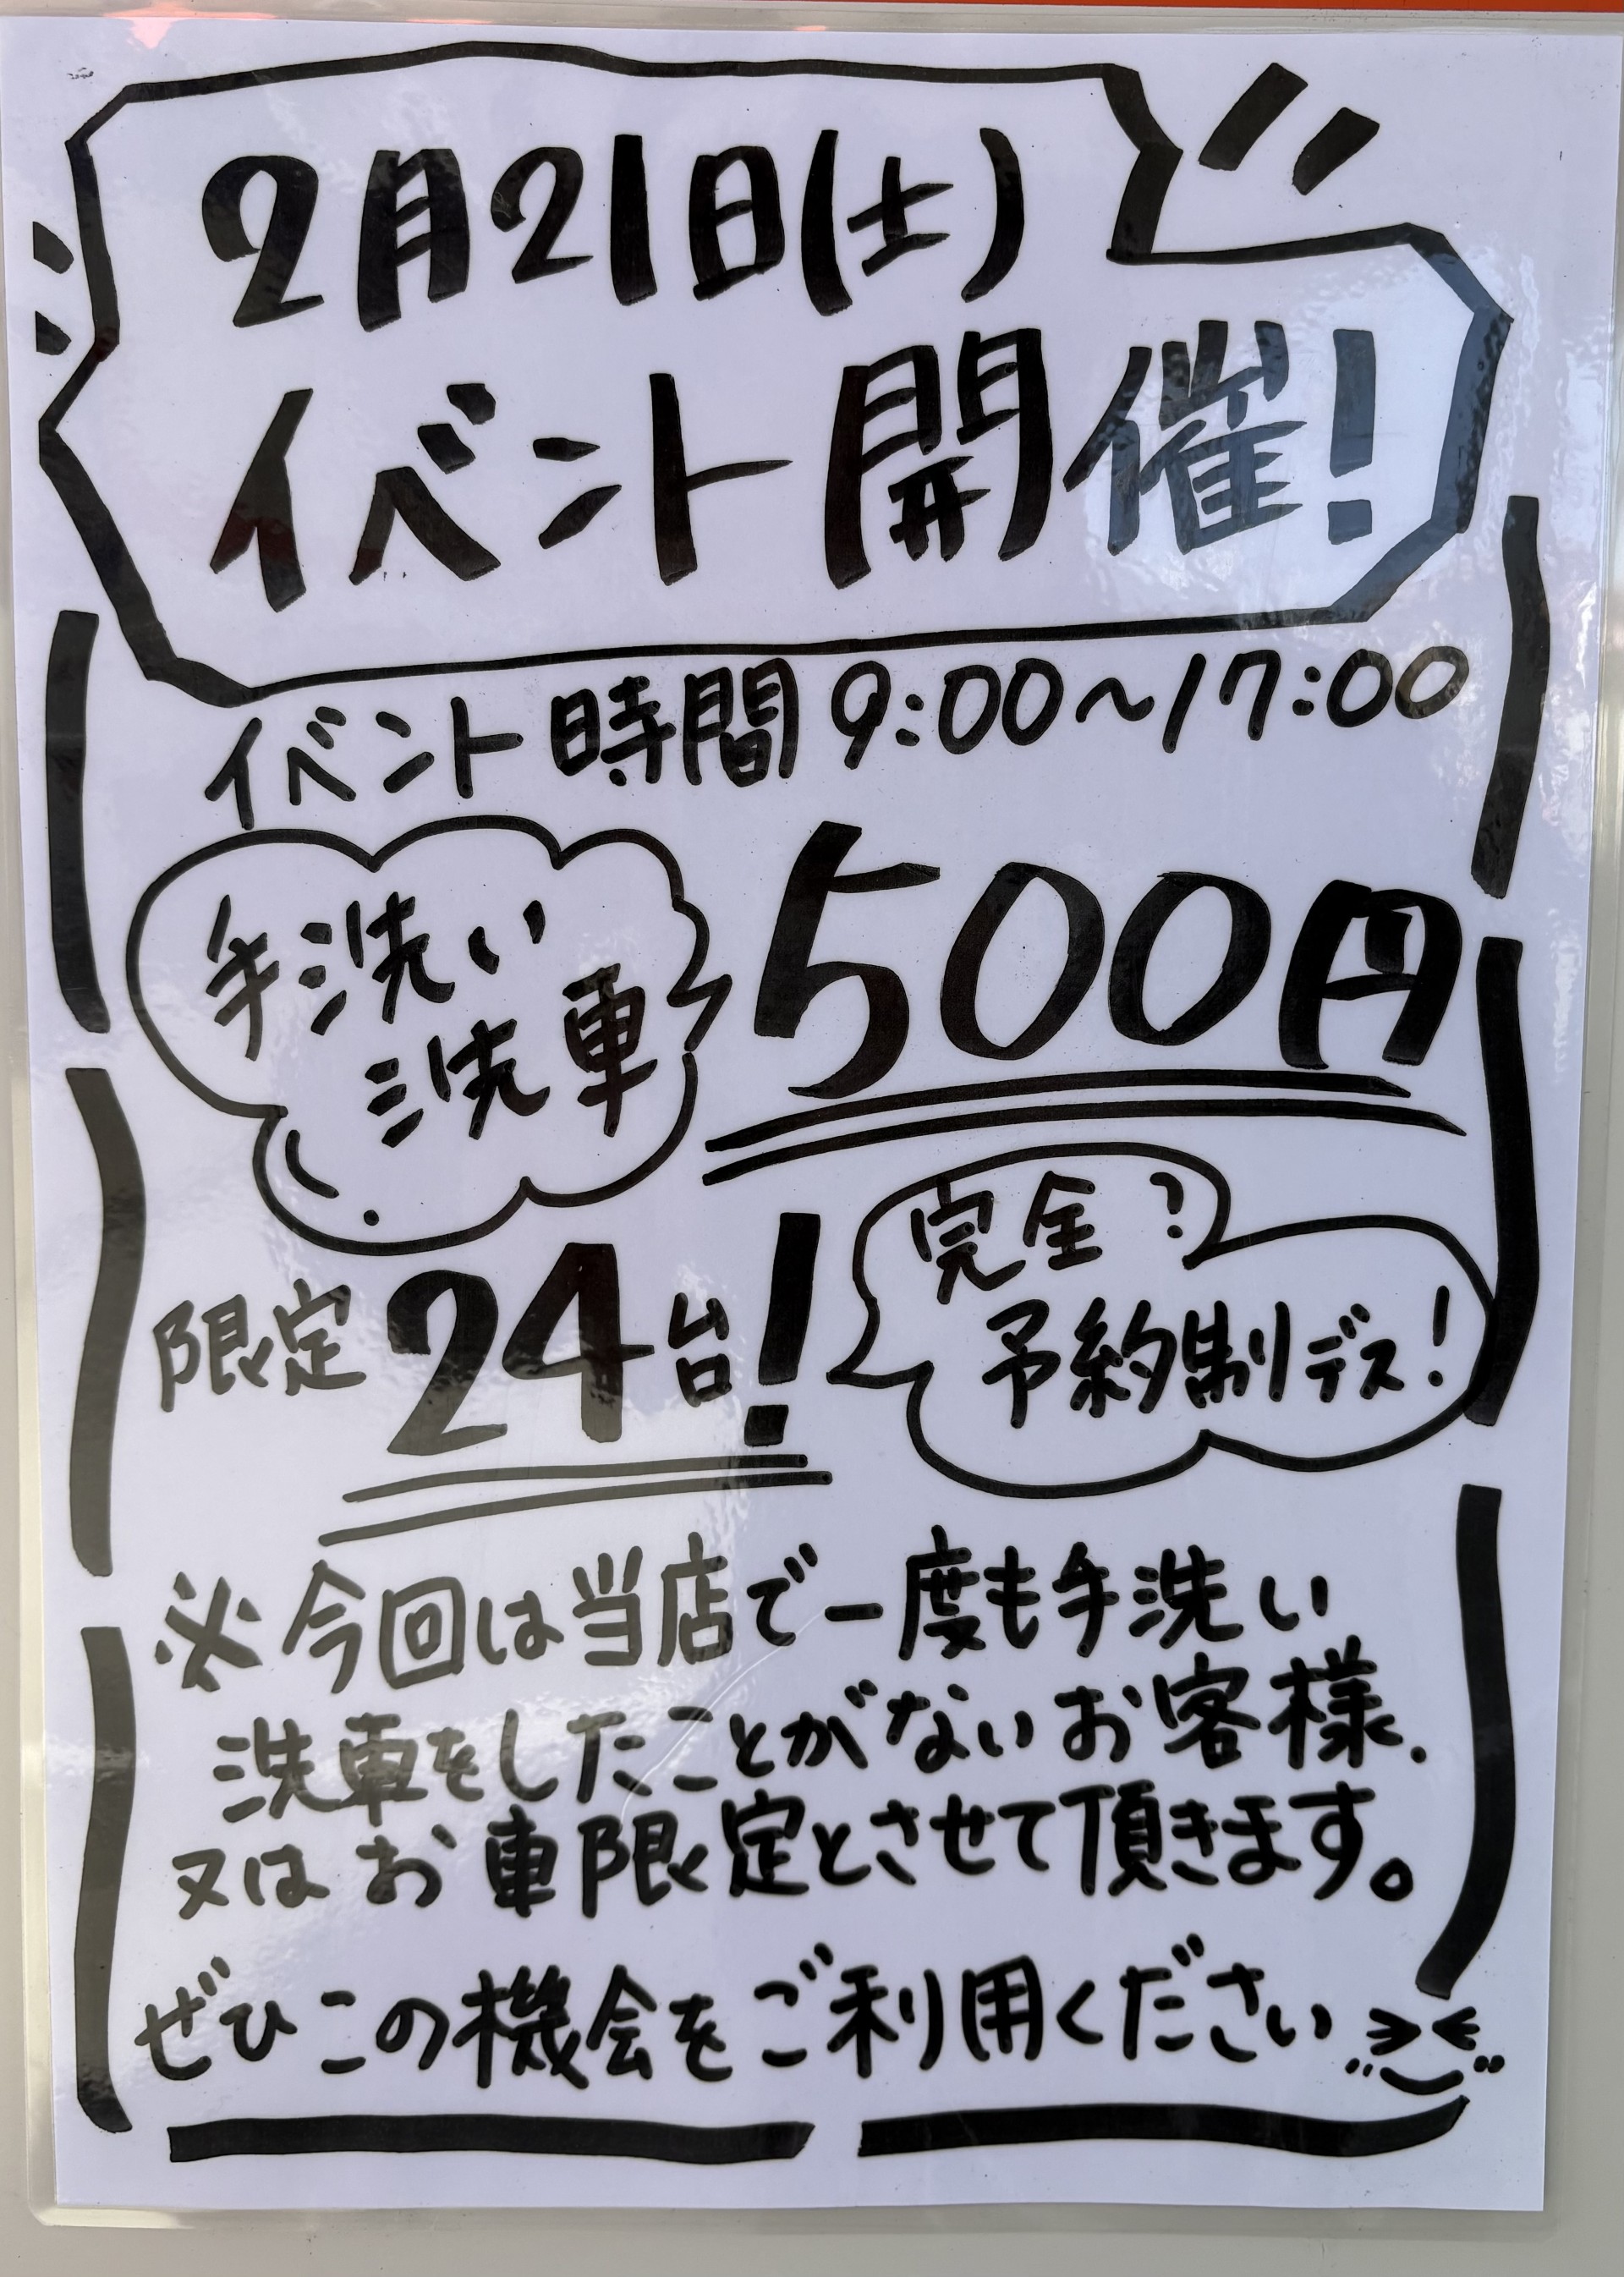 2月21日(土)
イベント開催!
イベント時間 9:00〜17:00
手洗い
洗車
500円
限定24台!
完全?
予約制デス!
※今回は当店で一度も手洗い
洗車をしたことがないお客様、
又はお車限定とさせて頂きます。
ぜひこの機会をご利用ください